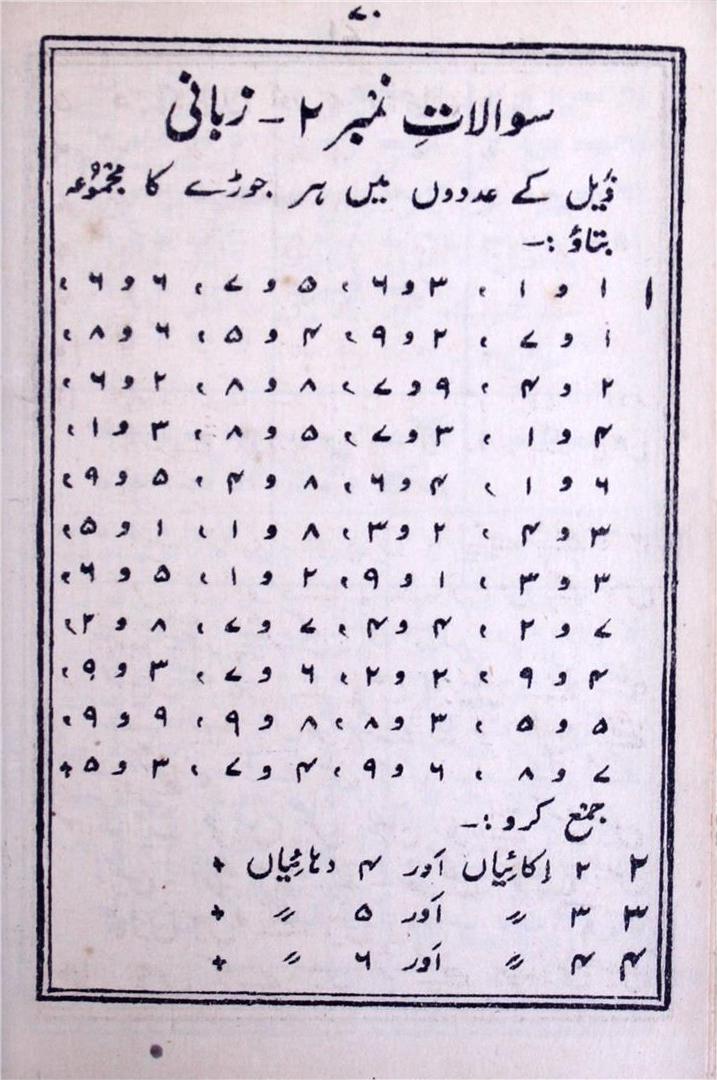 ۷۰
سوالاتِ نمبر ۲ - زبانی
ذَیل کے عددوں میں ہر جوڑے کا مجمُوعہ
بتاؤ :-
۱ ۱ و ۱ ، ۳ و ۶ ، ۵ و ۷ ، ۶ و ۶ ،
۱ و ۷ ، ۲ و ۹ ، ۴ و ۵ ، ۶ و ۸ ،
۲ و ۴ ، ۹ و ۷ ، ۸ و ۸ ، ۲ و ۶ ،
۴ و ۱ ، ۳ و ۷ ، ۵ و ۸ ، ۳ و ۱ ،
۶ و ۱ ، ۴ و ۶ ، ۸ و ۴ ، ۵ و ۹ ،
۳ و ۴ ، ۲ و ۳ ، ۸ و ۱ ، ۱ و ۵ ،
۳ و ۳ ، ۱ و ۹ ، ۲ و ۱ ، ۵ و ۶ ،
۷ و ۲ ، ۴ و ۴ ، ۷ و ۷ ، ۸ و ۲ ،
۴ و ۹ ، ۲ و ۲ ، ۶ و ۷ ، ۳ و ۹ ،
۵ و ۵ ، ۳ و ۸ ، ۸ و ۹ ، ۹ و ۹ ،
۷ و ۸ ، ۶ و ۹ ، ۴ و ۷ ، ۳ و ۵ +
جمع کرو :-
۲ ۲ اِکائِیاں اَور ۴ دہائِیاں +
۳ ۳ ״ اَور ۵ ״ +
۴ ۴ ״ اَور ۶ ״ +